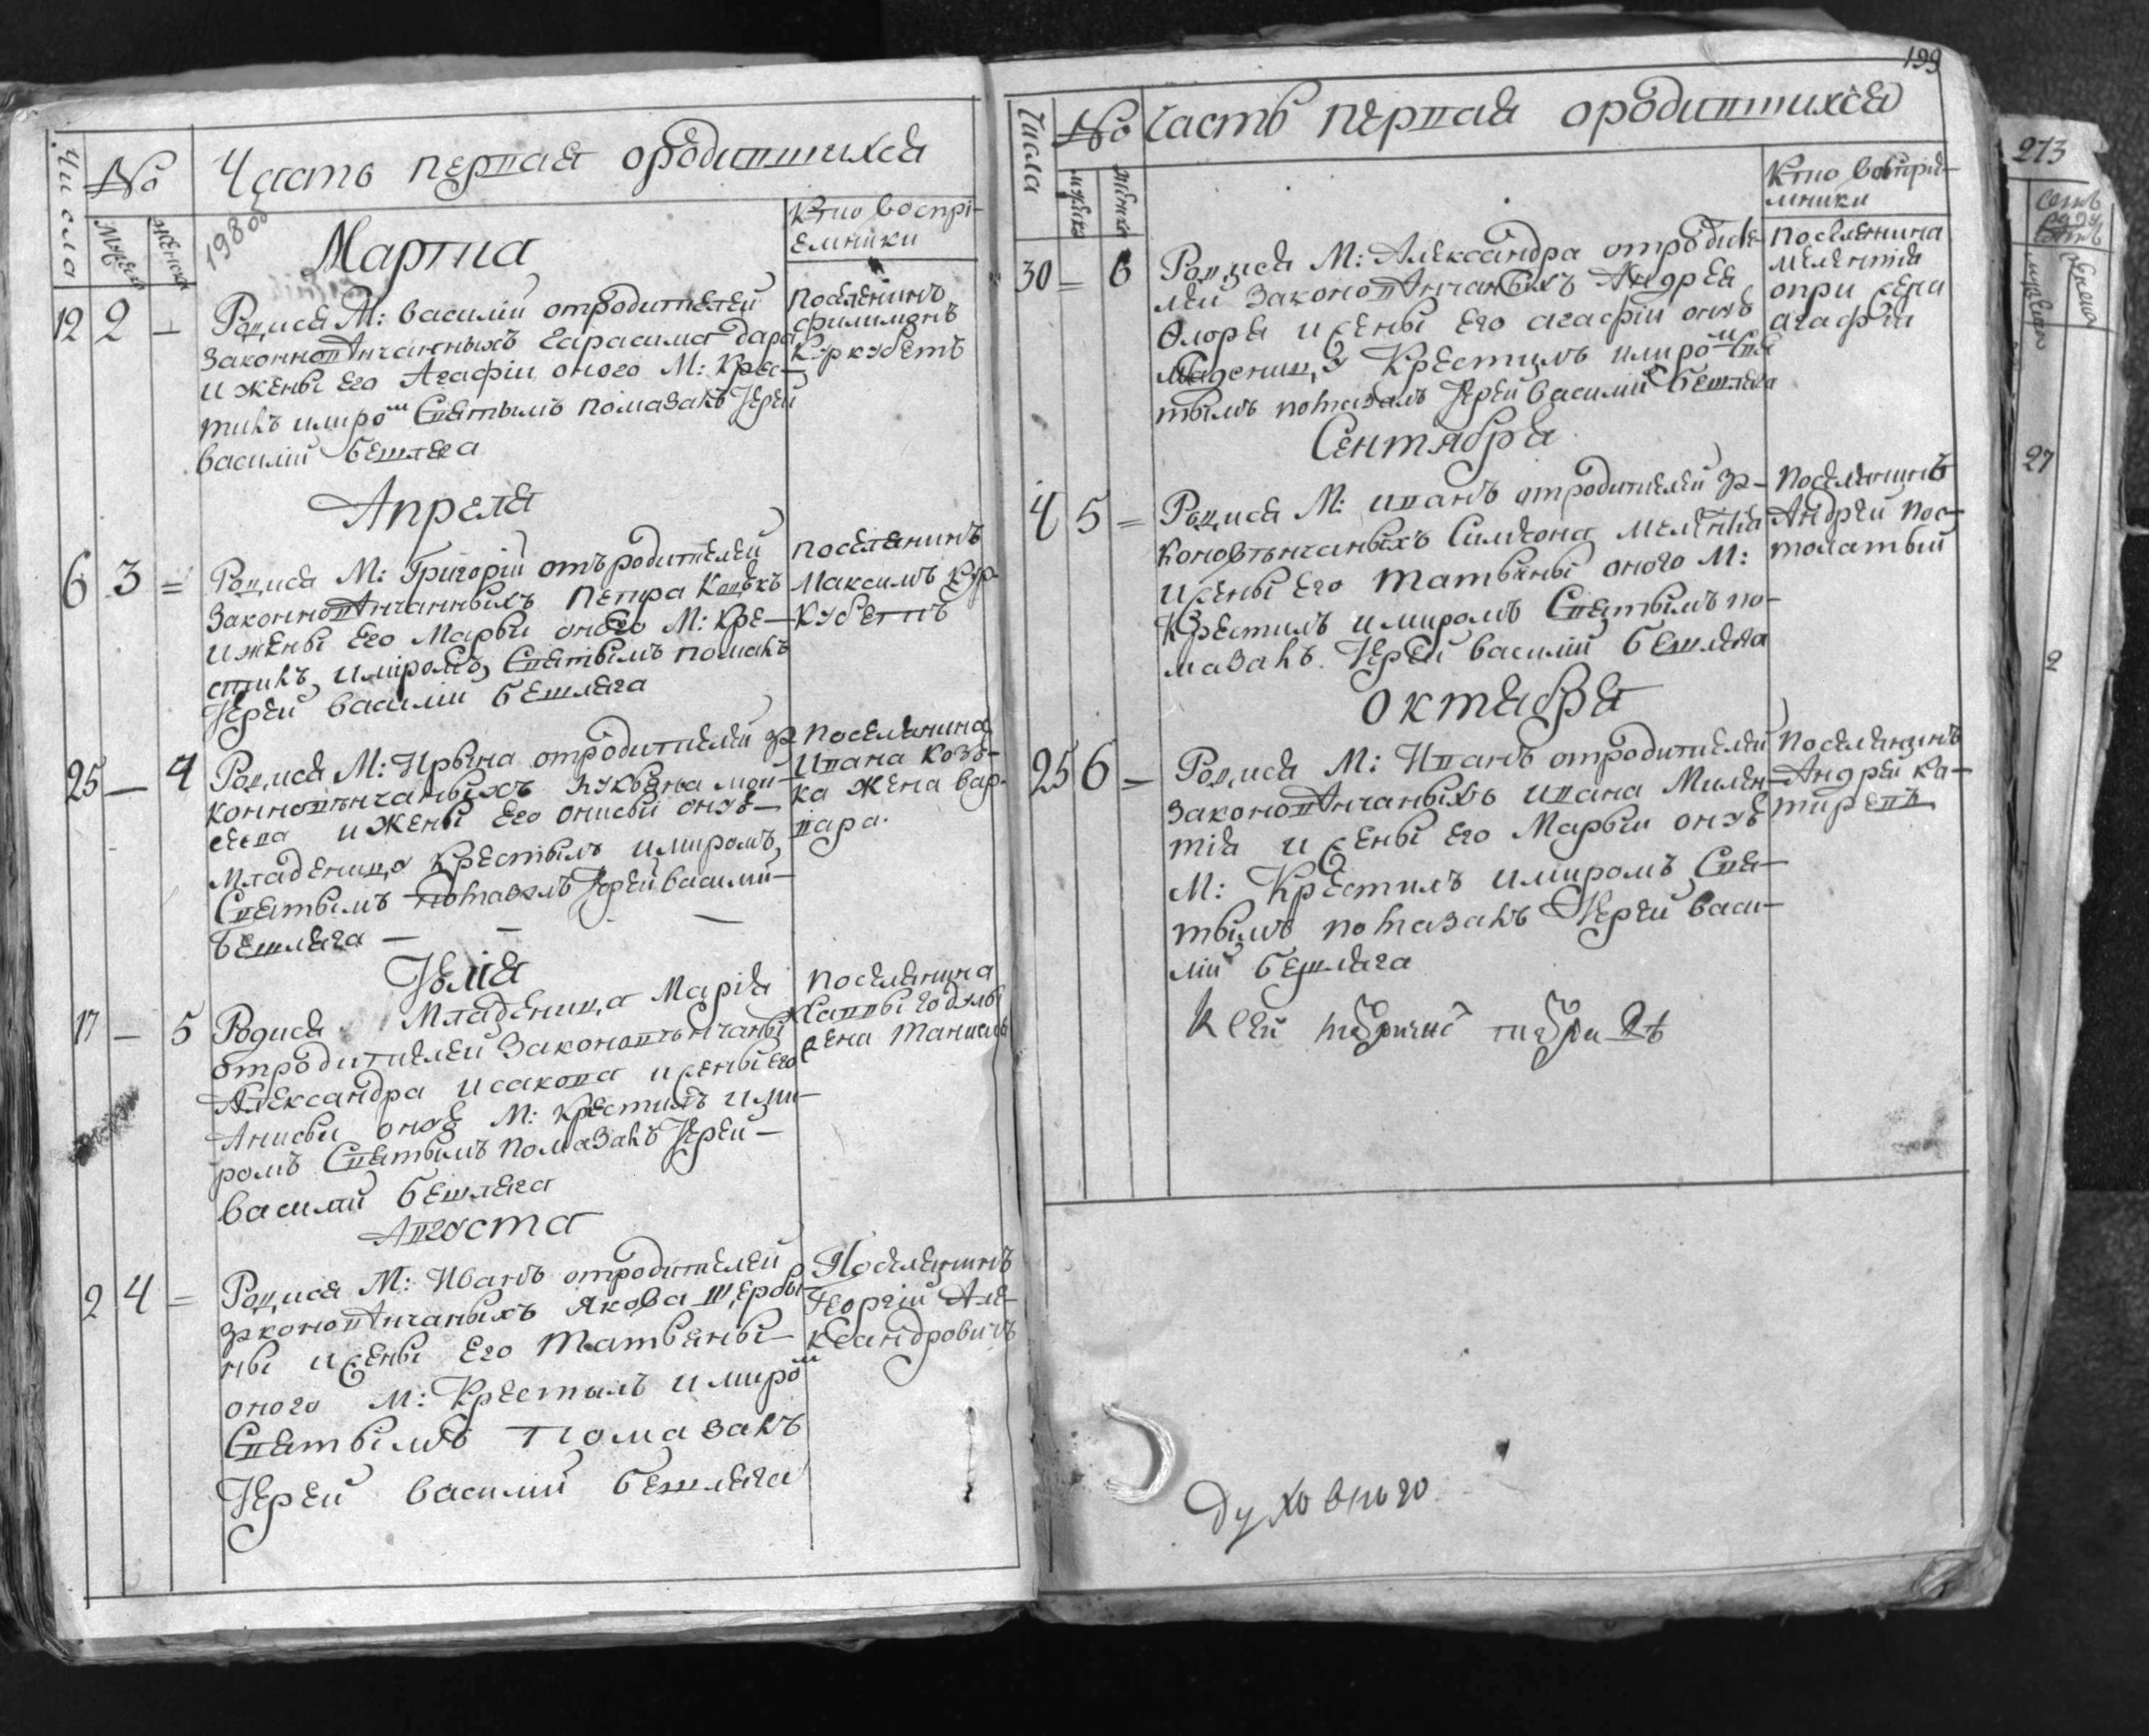 Числа
№
Часть первая ородившихся
Мужеска
Женска
198 об
Кто воспрі-
емники
Марта
12 2 —
Родися М: василій отродителей
законновѣнчанныхъ Гарасима Дара
и жены его Агафіи оного М: Крес-
тилъ имиромъ Святымъ помазалъ Іерей
василій Бешляга
Поселянинъ
филимонъ
Куркубетъ
Апреля
6 3 =
Родися М: Григорій отъ родителей
законновѣнчанныхъ Петра
и жены его Марьи оного М: Кре-
стилъ имиромъ Святымъ
Іерей василій Бешляга
поселянинъ
Максимъ Кур-
кубетъ
25 — 4
Родися М: Ирына отродителей за-
конновѣнчаныхъ Лукьяна Мои-
сеева и жены его онисьи онуѣ
Младеницу крестилъ имиромъ
Святымъ помазалъ Іерей василий
Бешляга —
поселянина
ивана Козо-
ка жена вар-
вара.
Іюлія
17 — 5
Родися Младеница Марія
отродителей законовѣнчаны
Александра исакова и жены его
Анисьи онуѣ М: крестилъ ими-
ромъ Святымъ помазалъ Іерей —
василий Бешляга
поселянина
Саввы
жена
Августа
2 4 =
Родися М: Иванъ отродителей
законовѣнчаныхъ якова Щербы-
ны и жены его Татьяны —
оного М: Крестилъ имиромъ
Святымъ помазалъ
Іерей василий Бешляга
Поселянинъ
Георгій Але-
ксандровичъ
199
Числа
№
Часть первая ородившихся
Мужеска
Женска
Кто воспріе-
мники
30 = 6
Родися М: Александра отродите-
лей законовѣнчаныхъ Андрея
Флоря и жены его агафіи онуѣ
Младеницу Крестилъ имиромъ Свя-
тымъ помазалъ Іерей василий Бешляга
поселянина
мелентія
опри жена
агафія
Сентября
4 5 =
Родися М: иванъ отродителей за-
коновѣнчаныхъ Симеона Мелентія
и жены его татьяны оного М:
Крестилъ имиромъ Святымъ по-
мазалъ Іерей василий Бешляга
поселянинъ
Андрей пос-
толатый
октября
25 6 =
Родися М: Иванъ отродителей
законовѣнчаныхъ ивана Милен-
тія и жены его Марьи онуѣ
М: Крестилъ имиромъ Свя-
тымъ помазалъ Іерей васи-
лій Бешляга
поселянинъ
Андрей Ка-
тиревъ
К сей
духовного
273
27
2